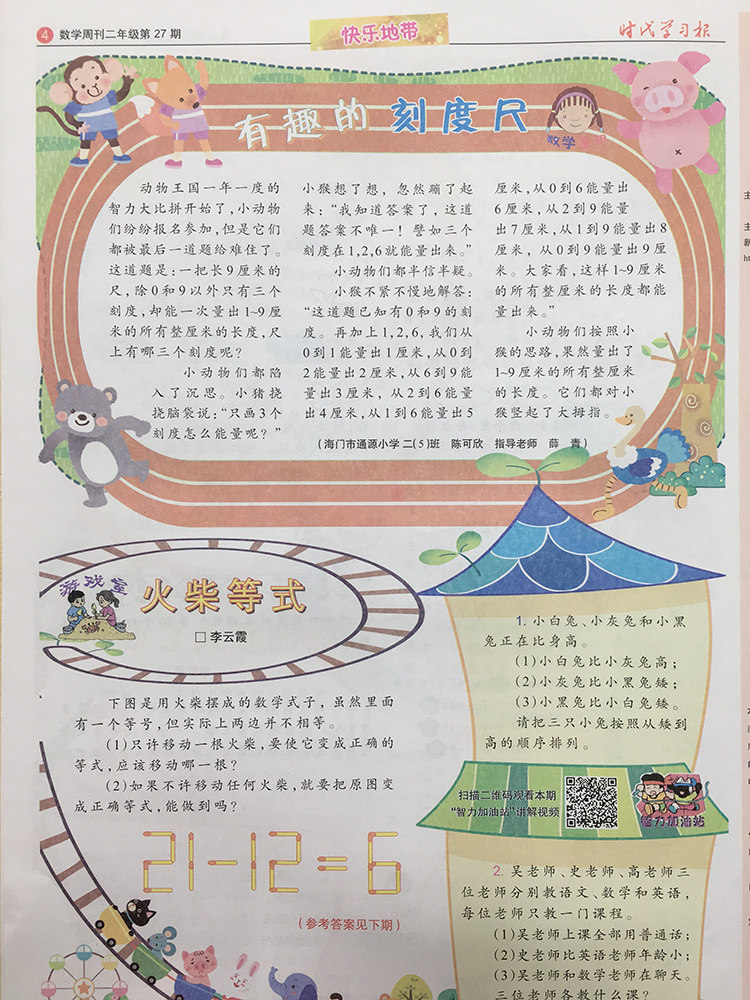 4 数学周刊二年级第 27 期
快乐地带
时代学习报
有趣的 刻度尺
数学
动物王国一年一度的
智力大比拼开始了，小动物
们纷纷报名参加，但是它们
都被最后一道题给难住了。
这道题是：一把长9厘米的
尺，除0和9以外只有三个
刻度，却能一次量出1~9厘
米的所有整厘米的长度，尺
上有哪三个刻度呢？
小动物们都陷
入了沉思。小猪挠
挠脑袋说：“只画3个
刻度怎么能量呢？”
小猴想了想，忽然蹦了起
来：“我知道答案了，这道
题答案不唯一！譬如三个
刻度在1,2,6就能量出来。”
小动物们都半信半疑。
小猴不紧不慢地解答：
“这道题已知有0和9的刻
度。再加上1,2,6，我们从
0到1能量出1厘米，从0到
2能量出2厘米，从6到9能
量出3厘米，从2到6能量
出4厘米，从1到6能量出5
厘米，从0到6能量出
6厘米，从2到9能量
出7厘米，从1到9能量出8
厘米，从0到9能量出9厘
米。大家看，这样1~9厘米
的所有整厘米的长度都能
量出来。”
小动物们按照小
猴的思路，果然量出了
1~9厘米的所有整厘米
的长度。它们都对小
猴竖起了大拇指。
（海门市通源小学二(5)班 陈可欣 指导老师 薛 青）
游戏室
火柴等式
□ 李云霞
下图是用火柴摆成的数学式子，虽然里面
有一个等号，但实际上两边并不相等。
(1)只许移动一根火柴，要使它变成正确的
等式，应该移动哪一根？
(2)如果不许移动任何火柴，就要把原图变
成正确等式，能做到吗？
21-12=6
（参考答案见下期）
1. 小白兔、小灰兔和小黑
兔正在比身高。
(1)小白兔比小灰兔高；
(2)小灰兔比小黑兔矮；
(3)小黑兔比小白兔矮。
请把三只小兔按照从矮到
高的顺序排列。
扫描二维码观看本期
“智力加油站”讲解视频
智力加油站
2. 吴老师、史老师、高老师三
位老师分别教语文、数学和英语，
每位老师只教一门课程。
(1)吴老师上课全部用普通话；
(2)史老师比英语老师年龄小；
(3)吴老师和数学老师在聊天。
三位老师各教什么课？